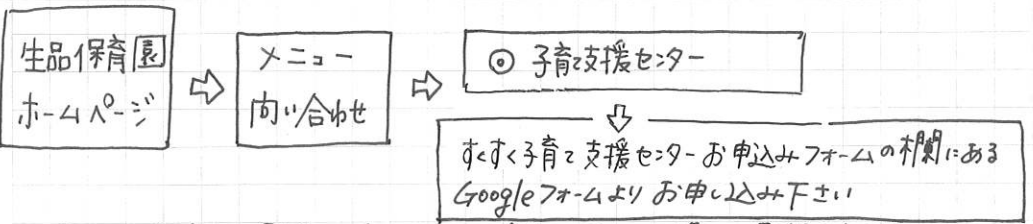 生品保育園
ホームページ
メニュー
問い合わせ
◎ 子育て支援センター
すくすく子育て支援センターお申込みフォームの欄にある
Googleフォームよりお申し込み下さい